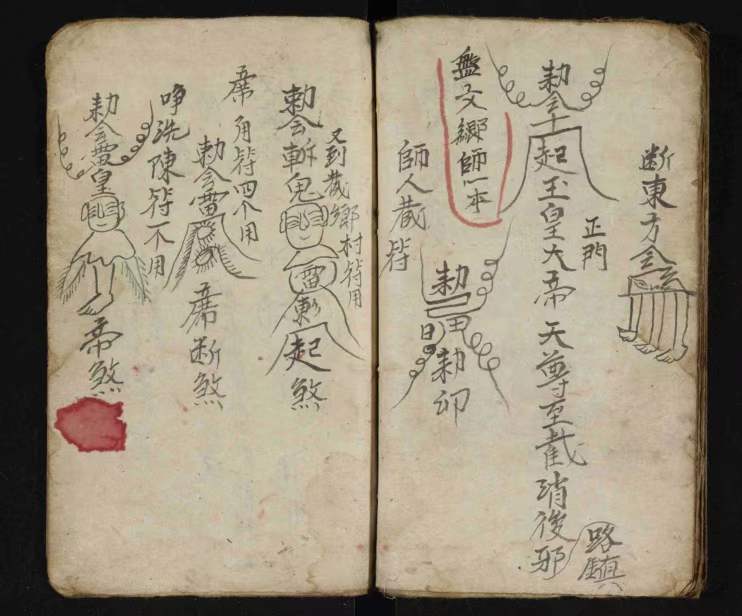 断東方
勅令
起玉皇大帝天尊至截消後邪
正門
路鎮
盤文鄉師一本
師人截符
勅
日
勅印
又到截鄉村符用
勅令斬鬼
雷
起煞
席角符四个用
勅令雷
席断煞
哰洗陳符不用
勅令雷皇
帝煞